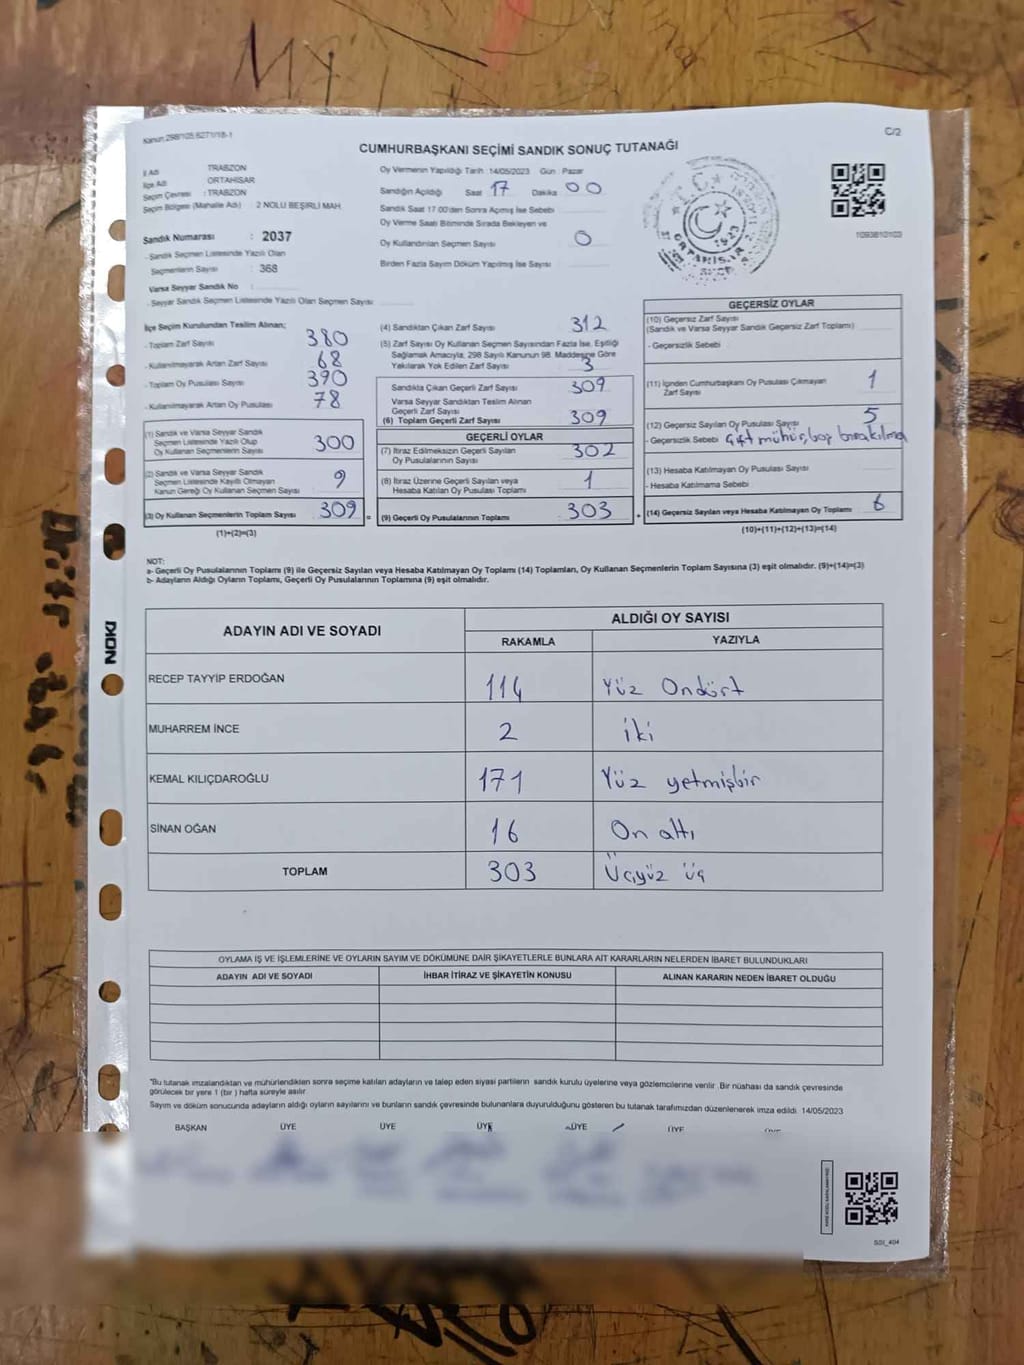 Kanun 298/105 6271/18-1
C/2
CUMHURBAŞKANI SEÇİMİ SANDIK SONUÇ TUTANAĞI
İl Adı TRABZON
İlçe Adı ORTAHİSAR
Seçim Çevresi : TRABZON
Seçim Bölgesi (Mahalle Adı) 2 NOLU BEŞİRLİ MAH.
Sandık Numarası : 2037
- Sandık Seçmen Listesinde Yazılı Olan
Seçmenlerin Sayısı : 368
Varsa Seyyar Sandık No :
- Seyyar Sandık Seçmen Listesinde Yazılı Olan Seçmen Sayısı
Oy Vermenin Yapıldığı Tarih : 14/05/2023 Gün : Pazar
Sandığın Açıldığı Saat 17 Dakika 00
Sandık Saat 17.00'den Sonra Açılmış İse Sebebi
Oy Verme Saati Bitiminde Sırada Bekleyen ve
Oy Kullandırılan Seçmen Sayısı 0
Birden Fazla Sayım Döküm Yapılmış İse Sayısı
ORTAHİSAR
1923
1093810103
İlçe Seçim Kurulundan Teslim Alınan;
- Toplam Zarf Sayısı 380
- Kullanılmayarak Artan Zarf Sayısı 68
- Toplam Oy Pusulası Sayısı 390
- Kullanılmayarak Artan Oy Pusulası 78
(1) Sandık ve Varsa Seyyar Sandık
Seçmen Listesinde Yazılı Olup
Oy Kullanan Seçmenlerin Sayısı 300
(2) Sandık ve Varsa Seyyar Sandık
Seçmen Listesinde Kayıtlı Olmayan
Kanun Gereği Oy Kullanan Seçmen Sayısı 9
(3) Oy Kullanan Seçmenlerin Toplam Sayısı 309 =
(1)+(2)=(3)
(4) Sandıktan Çıkan Zarf Sayısı 312
(5) Zarf Sayısı Oy Kullanan Seçmen Sayısından Fazla İse, Eşitliği
Sağlamak Amacıyla, 298 Sayılı Kanunun 98. Maddesine Göre
Yakılarak Yok Edilen Zarf Sayısı 3
Sandıkta Çıkan Geçerli Zarf Sayısı 309
Varsa Seyyar Sandıktan Teslim Alınan
Geçerli Zarf Sayısı
(6) Toplam Geçerli Zarf Sayısı 309
GEÇERLİ OYLAR
(7) İtiraz Edilmeksizin Geçerli Sayılan
Oy Pusulalarının Sayısı 302
(8) İtiraz Üzerine Geçerli Sayılan veya
Hesaba Katılan Oy Pusulası Toplamı 1
(9) Geçerli Oy Pusulalarının Toplamı 303 +
GEÇERSİZ OYLAR
(10) Geçersiz Zarf Sayısı
(Sandık ve Varsa Seyyar Sandık Geçersiz Zarf Toplamı)
- Geçersizlik Sebebi
(11) İçinden Cumhurbaşkanı Oy Pusulası Çıkmayan
Zarf Sayısı 1
(12) Geçersiz Sayılan Oy Pusulası Sayısı 5
- Geçersizlik Sebebi Çift mühür, boş bırakılma
(13) Hesaba Katılmayan Oy Pusulası Sayısı
- Hesaba Katılmama Sebebi
(14) Geçersiz Sayılan veya Hesaba Katılmayan Oy Toplamı 6
(10)+(11)+(12)+(13)=(14)
NOT:
a- Geçerli Oy Pusulalarının Toplamı (9) ile Geçersiz Sayılan veya Hesaba Katılmayan Oy Toplamı (14) Toplamları, Oy Kullanan Seçmenlerin Toplam Sayısına (3) eşit olmalıdır. (9)+(14)=(3)
b- Adayların Aldığı Oyların Toplamı, Geçerli Oy Pusulalarının Toplamına (9) eşit olmalıdır.
ADAYIN ADI VE SOYADI
ALDIĞI OY SAYISI
RAKAMLA YAZIYLA
RECEP TAYYİP ERDOĞAN 114 Yüz Ondört
MUHARREM İNCE 2 iki
KEMAL KILIÇDAROĞLU 171 Yüz yetmişbir
SİNAN OĞAN 16 On altı
TOPLAM 303 Üçyüz üç
OYLAMA İŞ VE İŞLEMLERİNE VE OYLARIN SAYIM VE DÖKÜMÜNE DAİR ŞİKAYETLERLE BUNLARA AİT KARARLARIN NELERDEN İBARET BULUNDUKLARI
ADAYIN ADI VE SOYADI İHBAR İTİRAZ VE ŞİKAYETİN KONUSU ALINAN KARARIN NEDEN İBARET OLDUĞU
"Bu tutanak imzalandıktan ve mühürlendikten sonra seçime katılan adayların ve talep eden siyasi partilerin sandık kurulu üyelerine veya gözlemcilerine verilir. Bir nüshası da sandık çevresinde
görülecek bir yere 1 (bir) hafta süreyle asılır
Sayım ve döküm sonucunda adayların aldığı oyların sayılarını ve bunların sandık çevresinde bulunanlara duyurulduğunu gösteren bu tutanak tarafımızdan düzenlenerek imza edildi. 14/05/2023
BAŞKAN ÜYE ÜYE ÜYE ÜYE ÜYE
NOKI